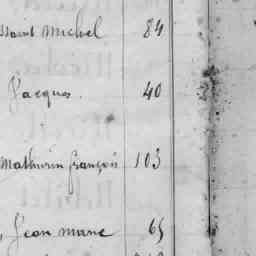 Saint Michel 84
Jacques 40
Mathurin françois 103
, Jean marie 65